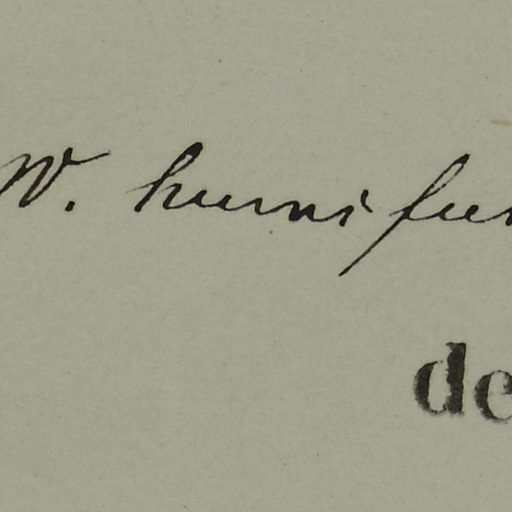 W. humifus
de